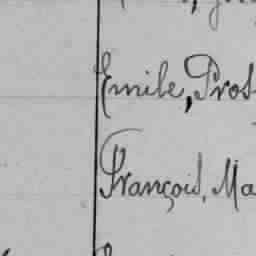 Emile, Pros
François, Ma